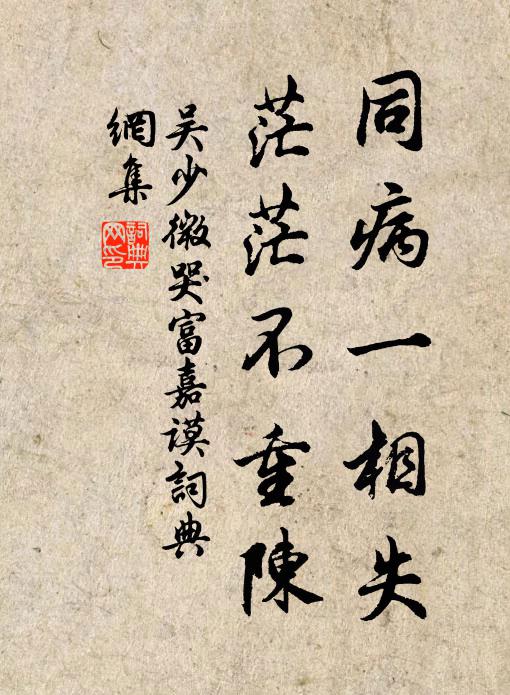 同病一相失
茫茫不重陳
吳少微哭富嘉謨詞典
網集
詞典
网印